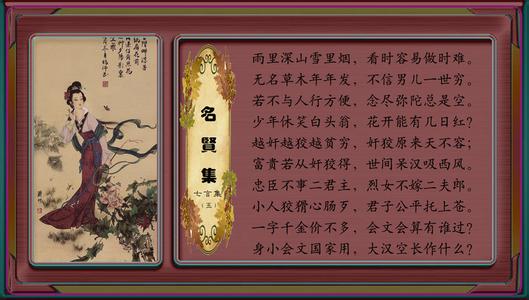 名賢集
七言集
（五）
雨里深山雪里烟，看时容易做时难。
无名草木年年发，不信男儿一世穷。
若不与人行方便，念尽弥陀总是空。
少年休笑白头翁，花开能有几日红？
越奸越狡越贫穷，奸狡原来天不容；
富贵若从奸狡得，世间呆汉吸西风。
忠臣不事二君主，烈女不嫁二夫郎。
小人狡猾心肠歹，君子公平托上苍。
一字千金价不多，会文会算有谁过？
身小会文国家用，大汉空长作什么？